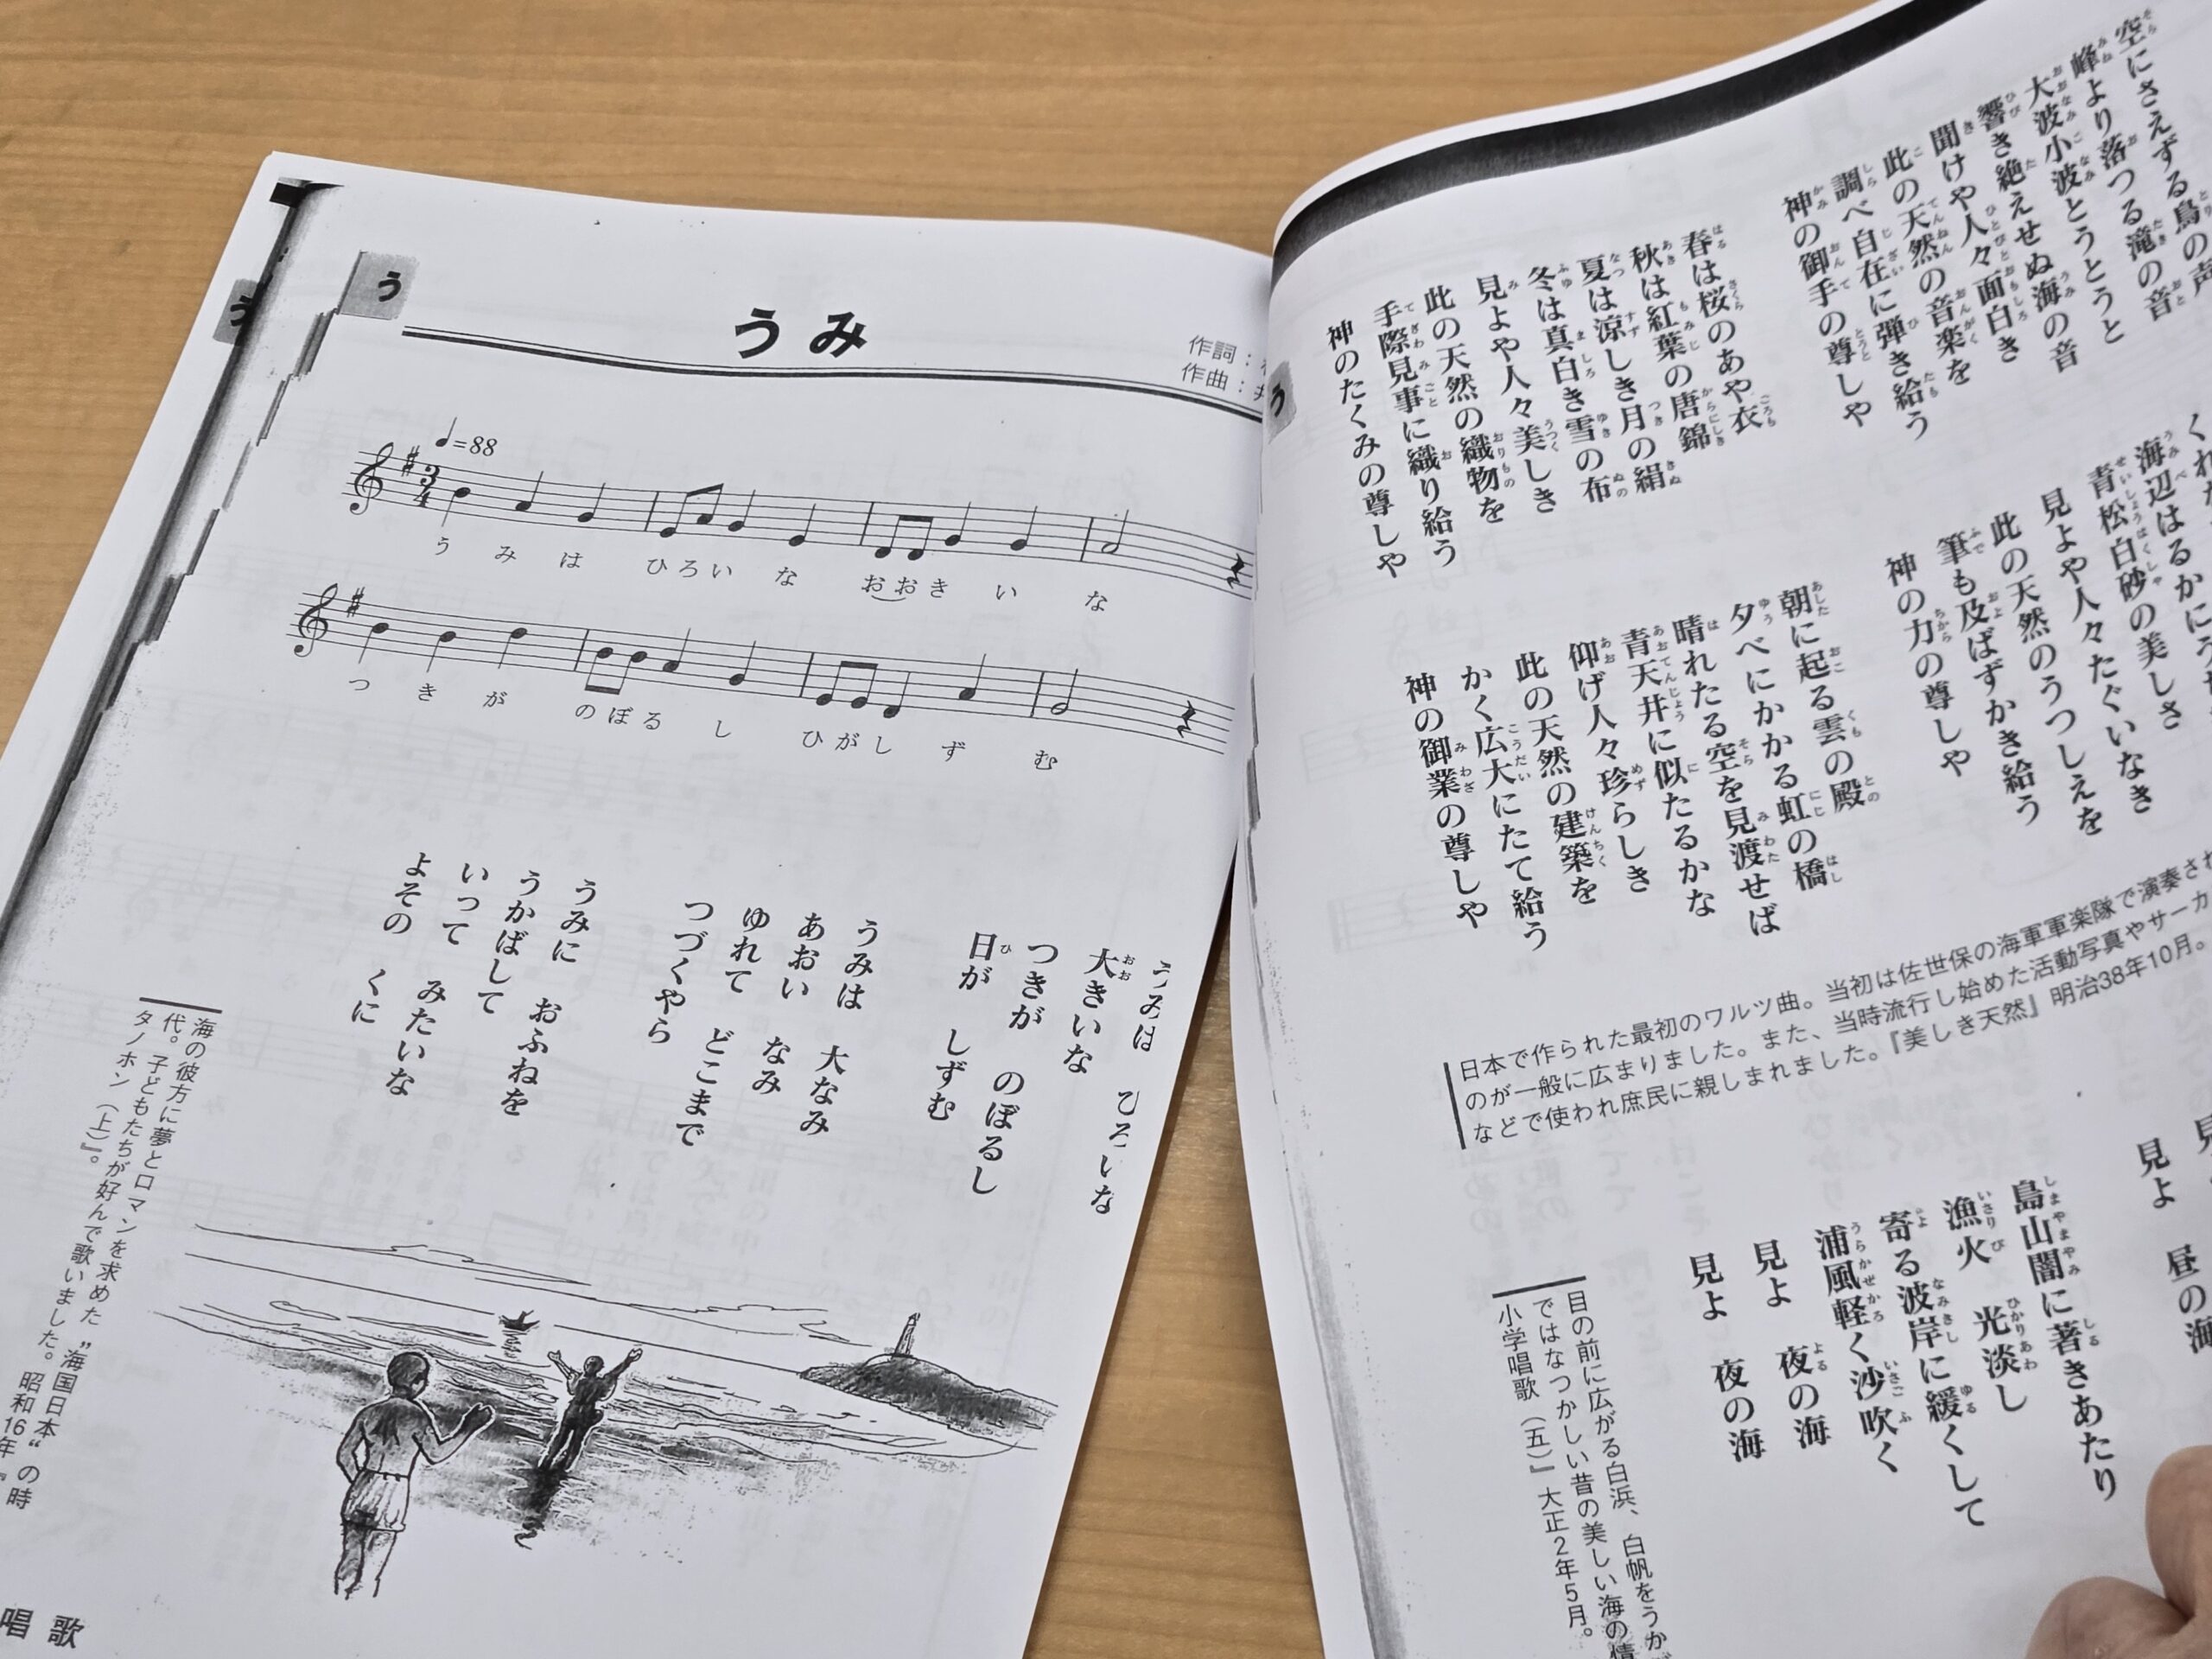 う
う
うみ
作詞:
作曲:
♩=88
うみは ひろいな おおきいな
つきが のぼるし ひがしずむ
うみは ひろいな
大きいな
つきが のぼるし
日が しずむ
うみは 大なみ
あおい なみ
ゆれて どこまで
つづくやら
うみに おふねを
うかばして
いって みたいな
よその くに
海の彼方に夢とロマンを求めた〝海国日本〟の時
代。子どもたちが好んで歌いました。昭和16年『
タノホン(上)』。
唱歌
う
空にさえずる鳥の声
峰より落つる滝の音
大波小波とうとうと
響き絶えせぬ海の音
聞けや人々面白き
此の天然の音楽を
調べ自在に弾き給う
神の御手の尊しや
春は桜のあや衣
秋は紅葉の唐錦
夏は涼しき月の絹
冬は真白き雪の布
見よや人々美しき
此の天然の織物を
手際見事に織り給う
神のたくみの尊しや
海辺はるかにう
青松白砂の美しさ
見よや人々たぐいなき
此の天然のうつしえを
筆も及ばずかき給う
神の力の尊しや
朝に起る雲の殿
夕べにかかる虹の橋
晴れたる空を見渡せば
青天井に似たるかな
仰げ人々珍らしき
此の天然の建築を
かく広大にたて給う
神の御業の尊しや
日本で作られた最初のワルツ曲。当初は佐世保の海軍軍楽隊で演奏され
のが一般に広まりました。また、当時流行し始めた活動写真やサーカ
などで使われ庶民に親しまれました。『美しき天然』明治38年10月。
見よ 昼の海
島山闇に著きあたり
漁火 光淡し
寄る波岸に緩くして
浦風軽く沙吹く
見よ 夜の海
見よ 夜の海
目の前に広がる白浜、白帆をうか
ではなつかしい昔の美しい海の情
小学唱歌(五)』大正2年5月。